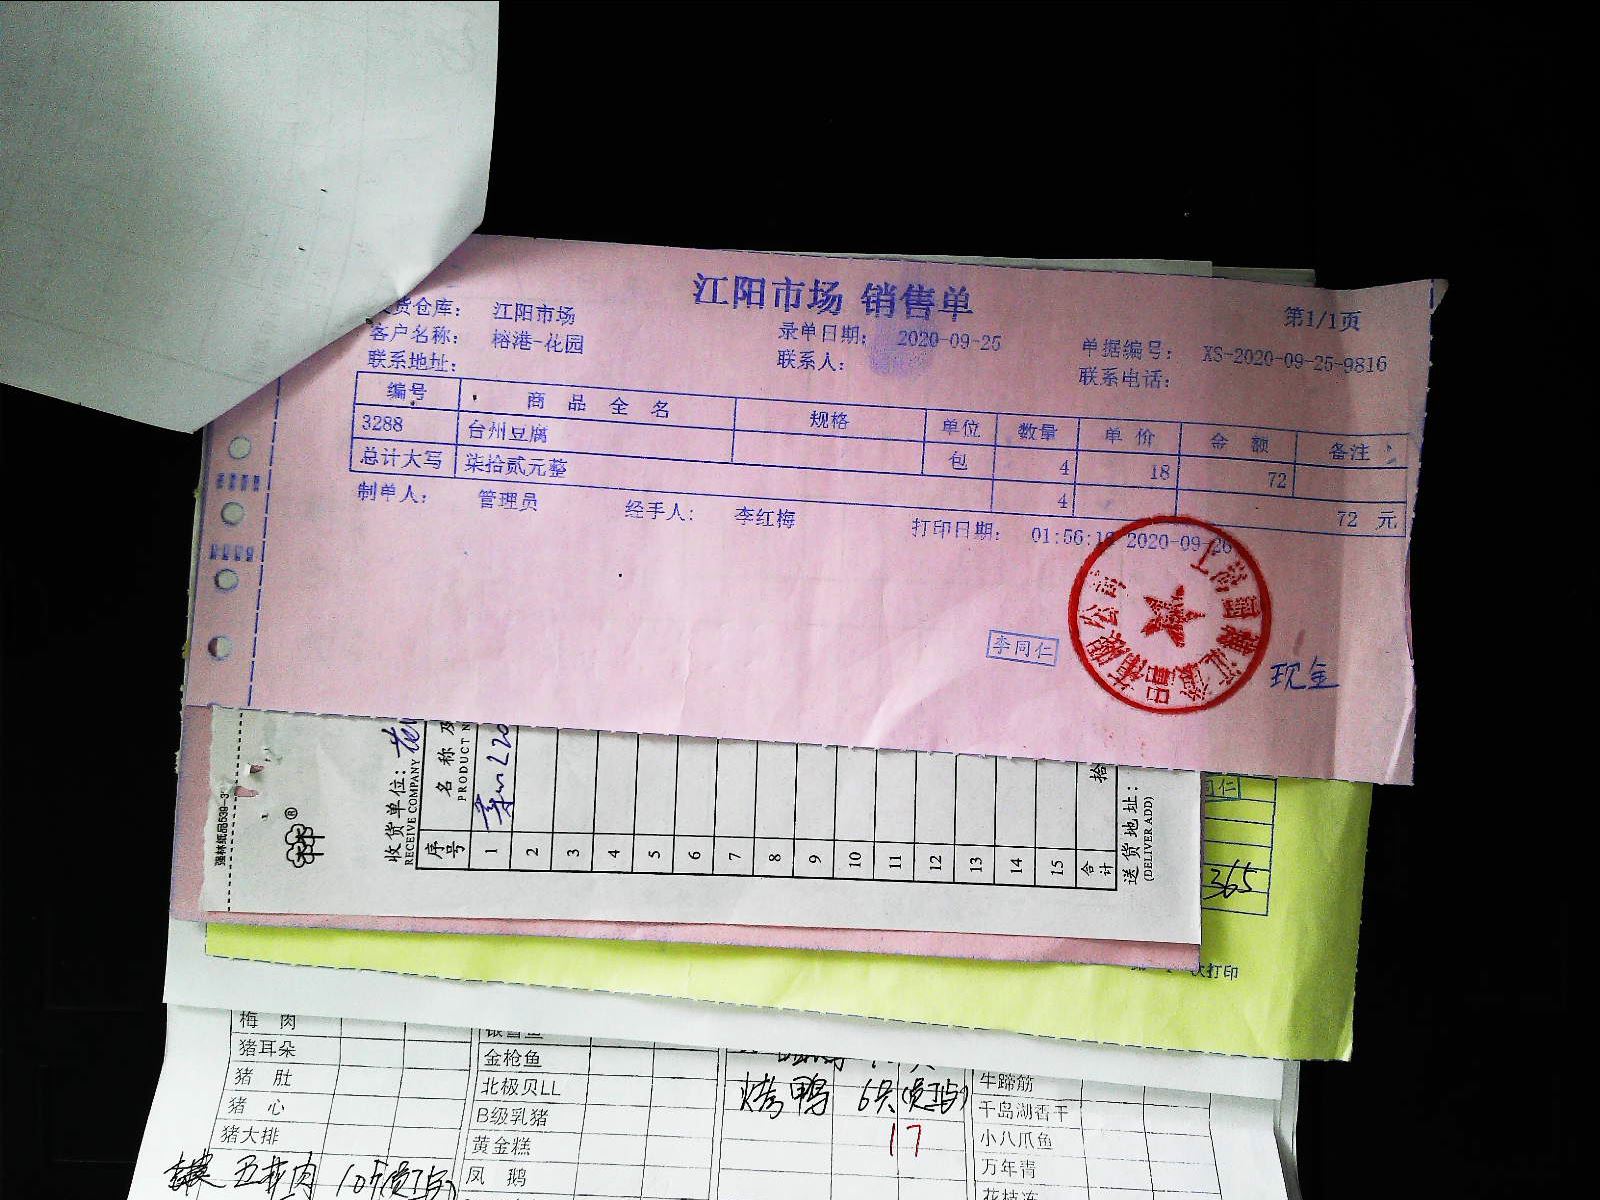 江阳市场 销售单
第1/1页
货仓库： 江阳市场
客户名称： 榕港-花园 录单日期： 2020-09-25 单据编号： XS-2020-09-25-9816
联系地址： 联系人： 联系电话：
编号 商品全名 规格 单位 数量 单价 金额 备注
3288 台州豆腐 包 4 18 72
总计大写 柒拾贰元整 4 72 元
制单人： 管理员 经手人： 李红梅 打印日期： 01:56:1 2020-09-26
李同仁
现金
收货单位：
RECEIVE COMPANY
序号 名称及
PRODUCT N
1
2
3
4
5
6
7
8
9
10
11
12
13
14
15
合计 拾
送货地址：
(DELIVER ADD)
强林纸品639-3
同仁
365
次打印
梅肉
猪耳朵 金枪鱼
猪肚 北极贝LL 烤鸭 6只 牛蹄筋
猪心 B级乳猪 17 千岛湖香干
猪大排 黄金糕 小八爪鱼
五花肉 10斤 凤鹅 万年青
花枝冻